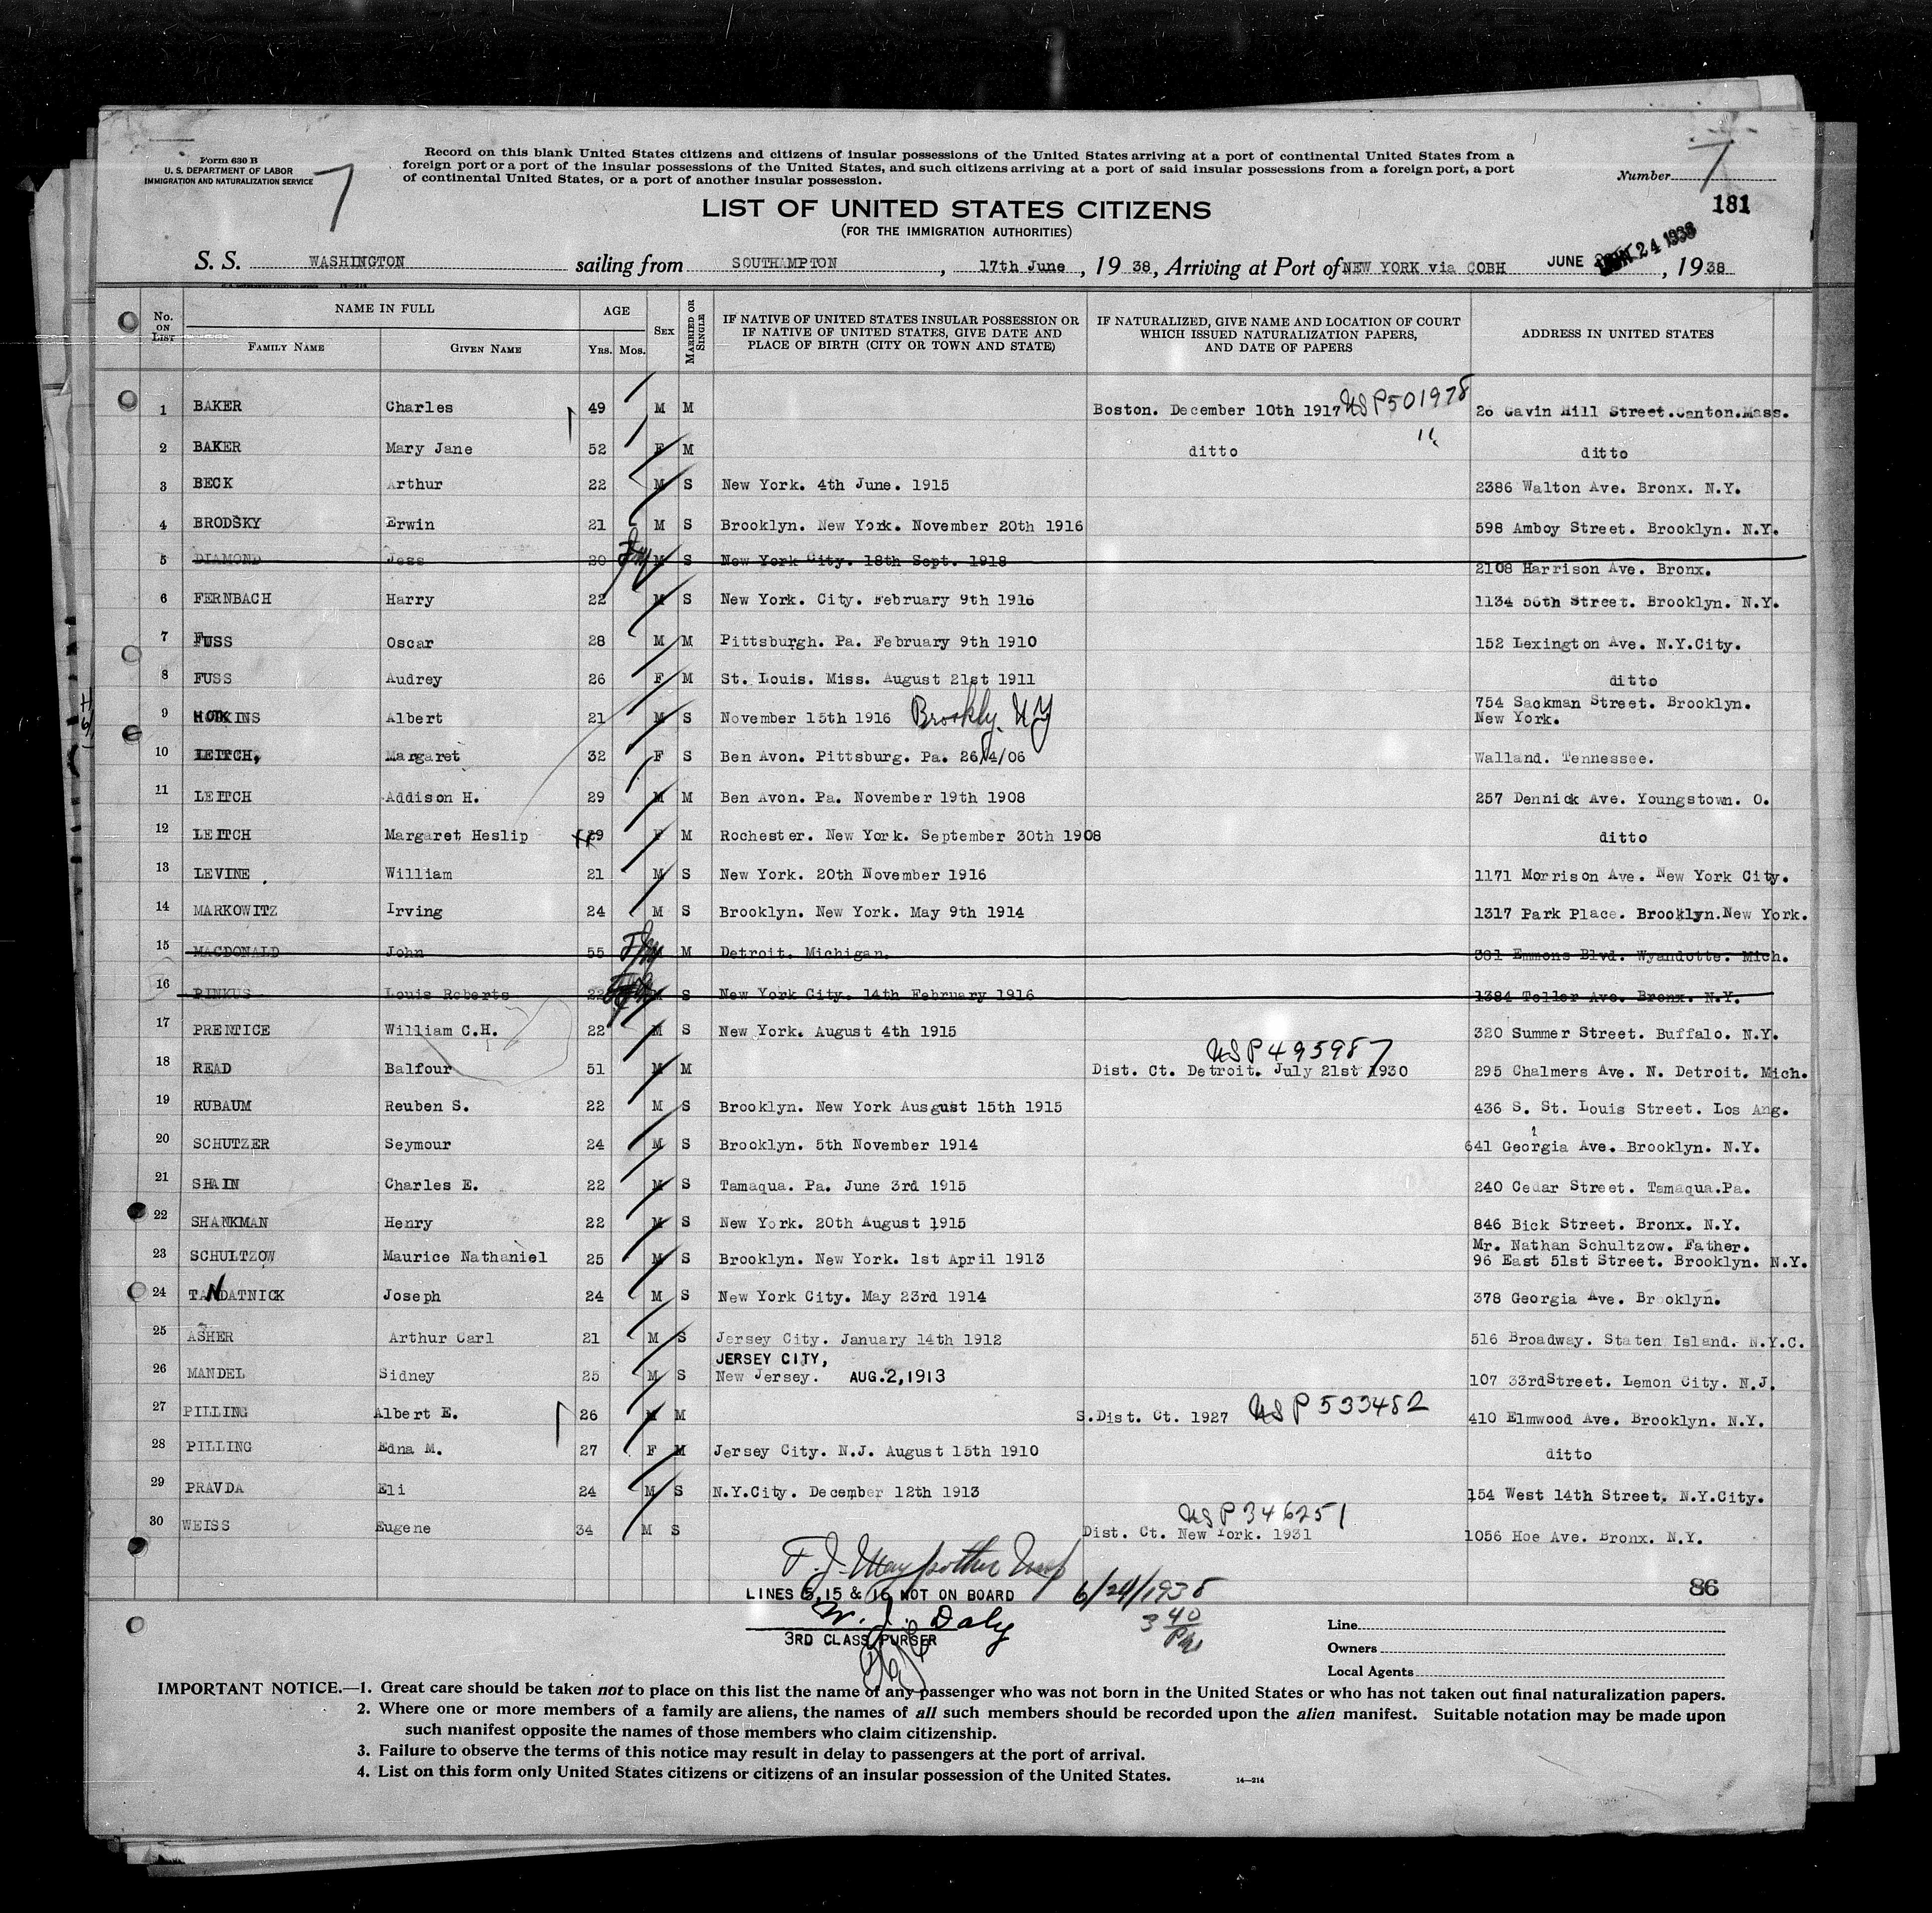 Form 630 B
U. S. DEPARTMENT OF LABOR
IMMIGRATION AND NATURALIZATION SERVICE
7
Record on this blank United States citizens and citizens of insular possessions of the United States arriving at a port of continental United States from a
foreign port or a port of the insular possessions of the United States, and such citizens arriving at a port of said insular possessions from a foreign port, a port
of continental United States, or a port of another insular possession.
Number 7
181
LIST OF UNITED STATES CITIZENS
(FOR THE IMMIGRATION AUTHORITIES)
S. S. WASHINGTON sailing from SOUTHAMPTON, 17th June, 19 38, Arriving at Port of NEW YORK via COBH JUNE JUN 24 1938, 19 38
No. ON LIST
NAME IN FULL
FAMILY NAME GIVEN NAME
AGE
YRS. MOS.
SEX
MARRIED OR SINGLE
IF NATIVE OF UNITED STATES INSULAR POSSESSION OR
IF NATIVE OF UNITED STATES, GIVE DATE AND
PLACE OF BIRTH (CITY OR TOWN AND STATE)
IF NATURALIZED, GIVE NAME AND LOCATION OF COURT
WHICH ISSUED NATURALIZATION PAPERS,
AND DATE OF PAPERS
ADDRESS IN UNITED STATES
1 BAKER Charles 49 M M Boston. December 10th 1917 USP501978 26 Gavin Hill Street.Canton.Mass.
2 BAKER Mary Jane 52 F M ditto " ditto
3 BECK Arthur 22 M S New York. 4th June. 1915 2386 Walton Ave. Bronx. N.Y.
4 BRODSKY Erwin 21 M S Brooklyn. New York. November 20th 1916 598 Amboy Street. Brooklyn. N.Y.
5 DIAMOND Jess 20 M S New York City. 18th Sept. 1918 2108 Harrison Ave. Bronx.
6 FERNBACH Harry 22 M S New York. City. February 9th 1916 1134 56th Street. Brooklyn. N.Y.
7 FUSS Oscar 28 M M Pittsburgh. Pa. February 9th 1910 152 Lexington Ave. N.Y.City.
8 FUSS Audrey 26 F M St. Louis. Miss. August 21st 1911 ditto
9 HOTKINS Albert 21 M S November 15th 1916 Brookly. NY 754 Sackman Street. Brooklyn.
New York.
10 LEITCH, Margaret 32 F S Ben Avon. Pittsburg. Pa. 26/4/06 Walland. Tennessee.
11 LEITCH Addison H. 29 M M Ben Avon. Pa. November 19th 1908 257 Dennick Ave. Youngstown. O.
12 LEITCH Margaret Heslip 29 F M Rochester. New York. September 30th 1908 ditto
13 LEVINE William 21 M S New York. 20th November 1916 1171 Morrison Ave. New York City.
14 MARKOWITZ Irving 24 M S Brooklyn. New York. May 9th 1914 1317 Park Place. Brooklyn.New York.
15 MACDONALD John 55 M M Detroit. Michigan. 381 Emmons Blvd. Wyandotte. Mich.
16 PINKUS Louis Roberts 22 M S New York City. 14th February 1916 1384 Teller Ave. Bronx. N.Y.
17 PRENTICE William C.H. 22 M S New York. August 4th 1915 320 Summer Street. Buffalo. N.Y.
18 READ Balfour 51 M M USP495987 Dist. Ct. Detroit. July 21st 1930 295 Chalmers Ave. N. Detroit. Mich.
19 RUBAUM Reuben S. 22 M S Brooklyn. New York Ausgust 15th 1915 436 S. St. Louis Street. Los Ang.
20 SCHUTZER Seymour 24 M S Brooklyn. 5th November 1914 641 Georgia Ave. Brooklyn. N.Y.
21 SHAIN Charles E. 22 M S Tamaqua. Pa. June 3rd 1915 240 Cedar Street. Tamaqua.Pa.
22 SHANKMAN Henry 22 M S New York. 20th August 1915 846 Bick Street. Bronx. N.Y.
23 SCHULTZOW Maurice Nathaniel 25 M S Brooklyn. New York. 1st April 1913 Mr. Nathan Schultzow. Father.
96 East 51st Street. Brooklyn. N.Y.
24 TANDATNICK Joseph 24 M S New York City. May 23rd 1914 378 Georgia Ave. Brooklyn.
25 ASHER Arthur Carl 21 M S Jersey City. January 14th 1912 516 Broadway. Staten Island. N.Y.C.
26 MANDEL Sidney 25 M S JERSEY CITY, New Jersey. AUG.2,1913 107 33rdStreet. Lemon City. N.J.
27 PILLING Albert E. 26 M M S.Dist. Ct. 1927 USP 533482 410 Elmwood Ave. Brooklyn. N.Y.
28 PILLING Edna M. 27 F M Jersey City. N.J. August 15th 1910 ditto
29 PRAVDA Eli 24 M S N.Y.City. December 12th 1913 154 West 14th Street. N.Y.City.
30 WEISS Eugene 34 M S USP346251 Dist. Ct. New York. 1931 1056 Hoe Ave. Bronx. N.Y.
F. J.
LINES 5,15 & 16 NOT ON BOARD 6/24/1938
86
W. J. Daly
3 40 PM
3RD CLASS PURSER
Line
Owners
Local Agents
IMPORTANT NOTICE.—1. Great care should be taken not to place on this list the name of any passenger who was not born in the United States or who has not taken out final naturalization papers.
2. Where one or more members of a family are aliens, the names of all such members should be recorded upon the alien manifest. Suitable notation may be made upon
such manifest opposite the names of those members who claim citizenship.
3. Failure to observe the terms of this notice may result in delay to passengers at the port of arrival.
4. List on this form only United States citizens or citizens of an insular possession of the United States.
14—214